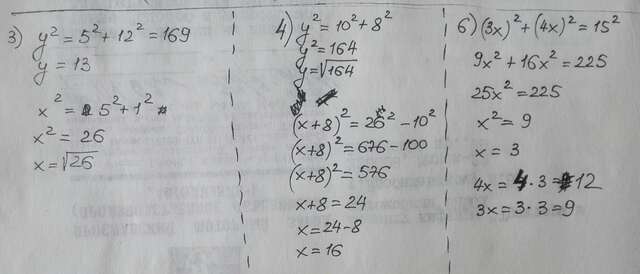 3) y² = 5² + 12² = 169
y = 13
x² = 5² + 1²
x² = 26
x = √26
4) y² = 10² + 8²
y² = 164
y = √164
(x+8)² = 26² - 10²
(x+8)² = 676 - 100
(x+8)² = 576
x+8 = 24
x = 24 - 8
x = 16
6) (3x)² + (4x)² = 15²
9x² + 16x² = 225
25x² = 225
x² = 9
x = 3
4x = 4 · 3 = 12
3x = 3 · 3 = 9